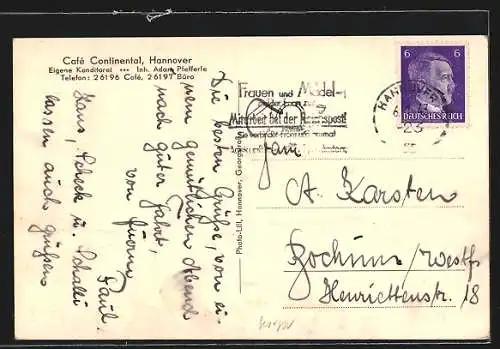 Café Continental, Hannover
Eigene Konditorei *** Inh. Adam Pfefferle
Telefon: 26196 Café, 26197 Büro
Die besten Grüße, von ei-
nem gemütlichen Abend
nach guter Fahrt,
von Euerm
Paul.
Hans, Scheck u. Schalli
lassen auch grüßen
Photo-Lill, Hannover, Georgstr.
Frauen und Mädel-
Mitarbeit bei der Reichspost!
HANNOVER
6 6
DEUTSCHES REICH
Fam.
A. Karsten
Bochum/Westf.
Henriettenstr. 18